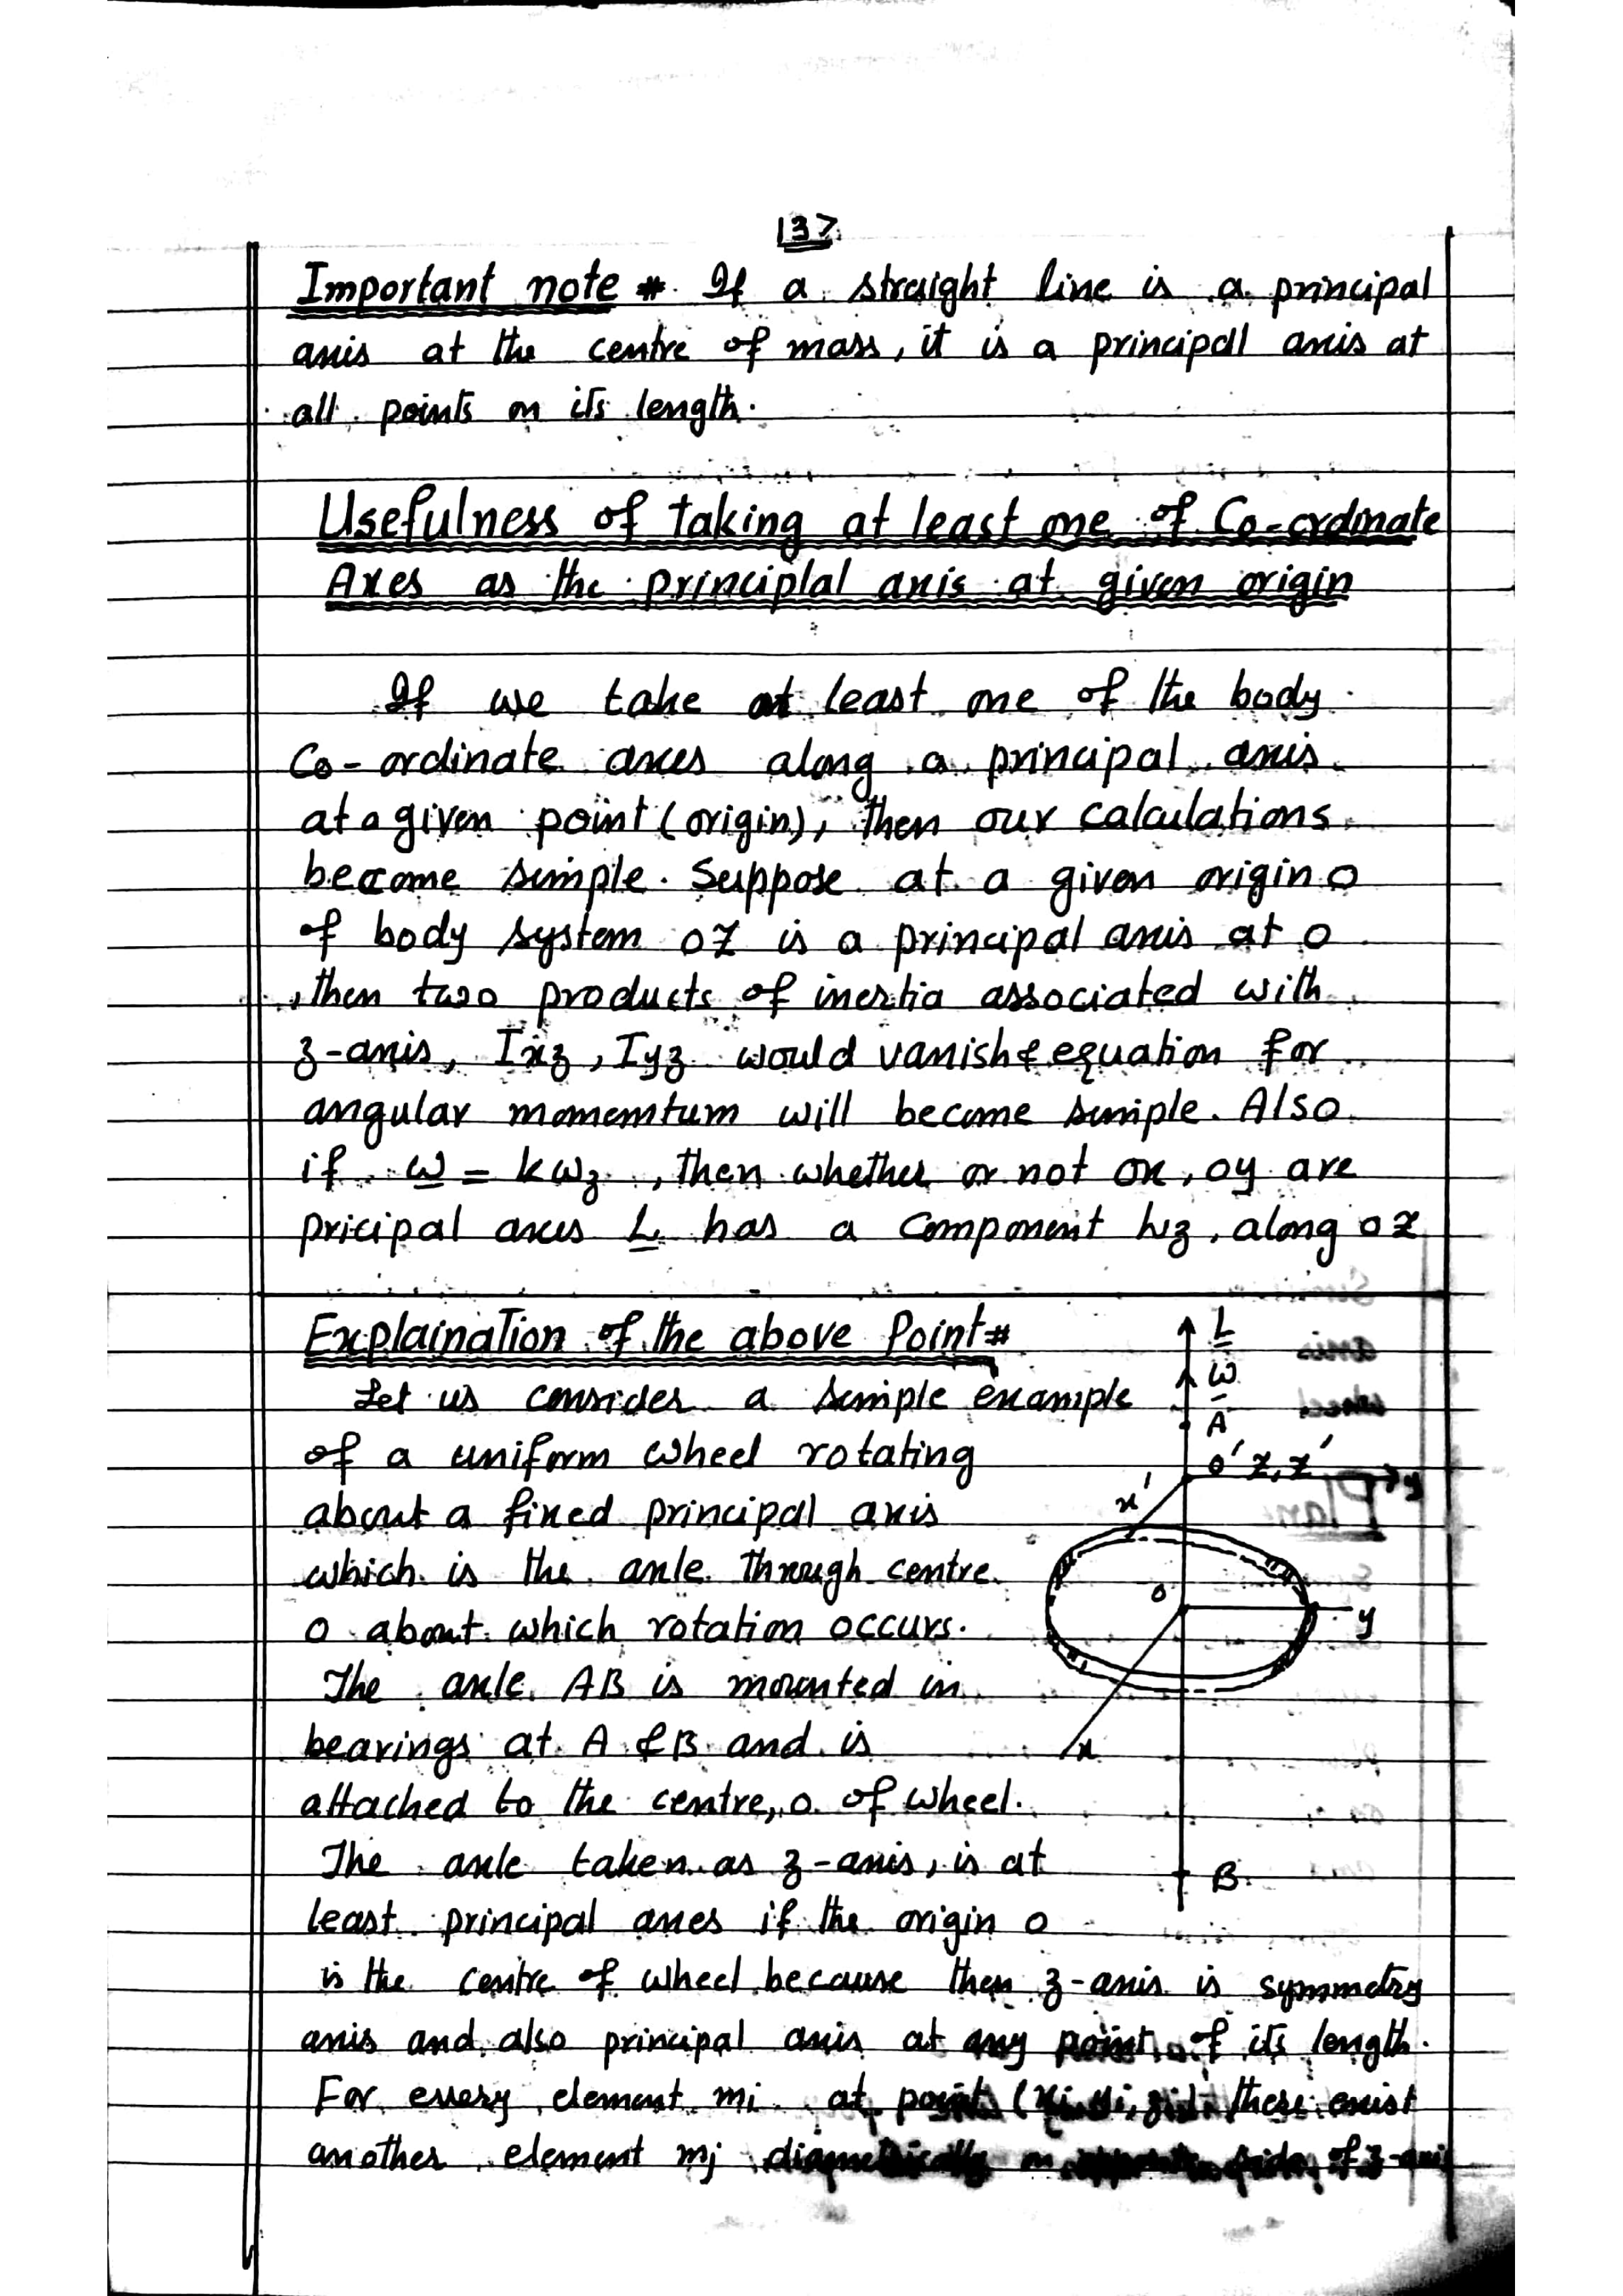 137
Important note # If a straight line is a principal
axis at the centre of mass, it is a principal axis at
all points on its length.
Usefulness of taking at least one of Co-ordinate
Axes as the principlal axis at given origin
If we take at least one of the body
Co-ordinate axes along a principal axis
at a given point (origin), then our calculations
become simple. Suppose at a given origin o
of body system oz is a principal axis at o
, then two products of inertia associated with
z-axis, Ixz, Iyz would vanish & equation for
angular momemtum will become simple. Also
if ω = kωz , then whether or not ox, oy are
pricipal axes L has a component Lz, along oz
Explaination of the above Point #
Let us consider a simple example
of a uniform wheel rotating
about a fixed principal axis
which is the axle through centre
o about which rotation occurs.
The axle AB is mounted in
bearings at A & B and is
attached to the centre, o of wheel.
The axle taken as z-axis, is at
least principal axes if the origin o
is the centre of wheel because then z-axis is symmetry
axis and also principal axis at any point of its length.
For every element mi at point (xi, yi, zi) there exist
another element mj diametrically on opposite side of z-axis
L
ω
A
o' z, z'
y'
x'
o
y
x
B